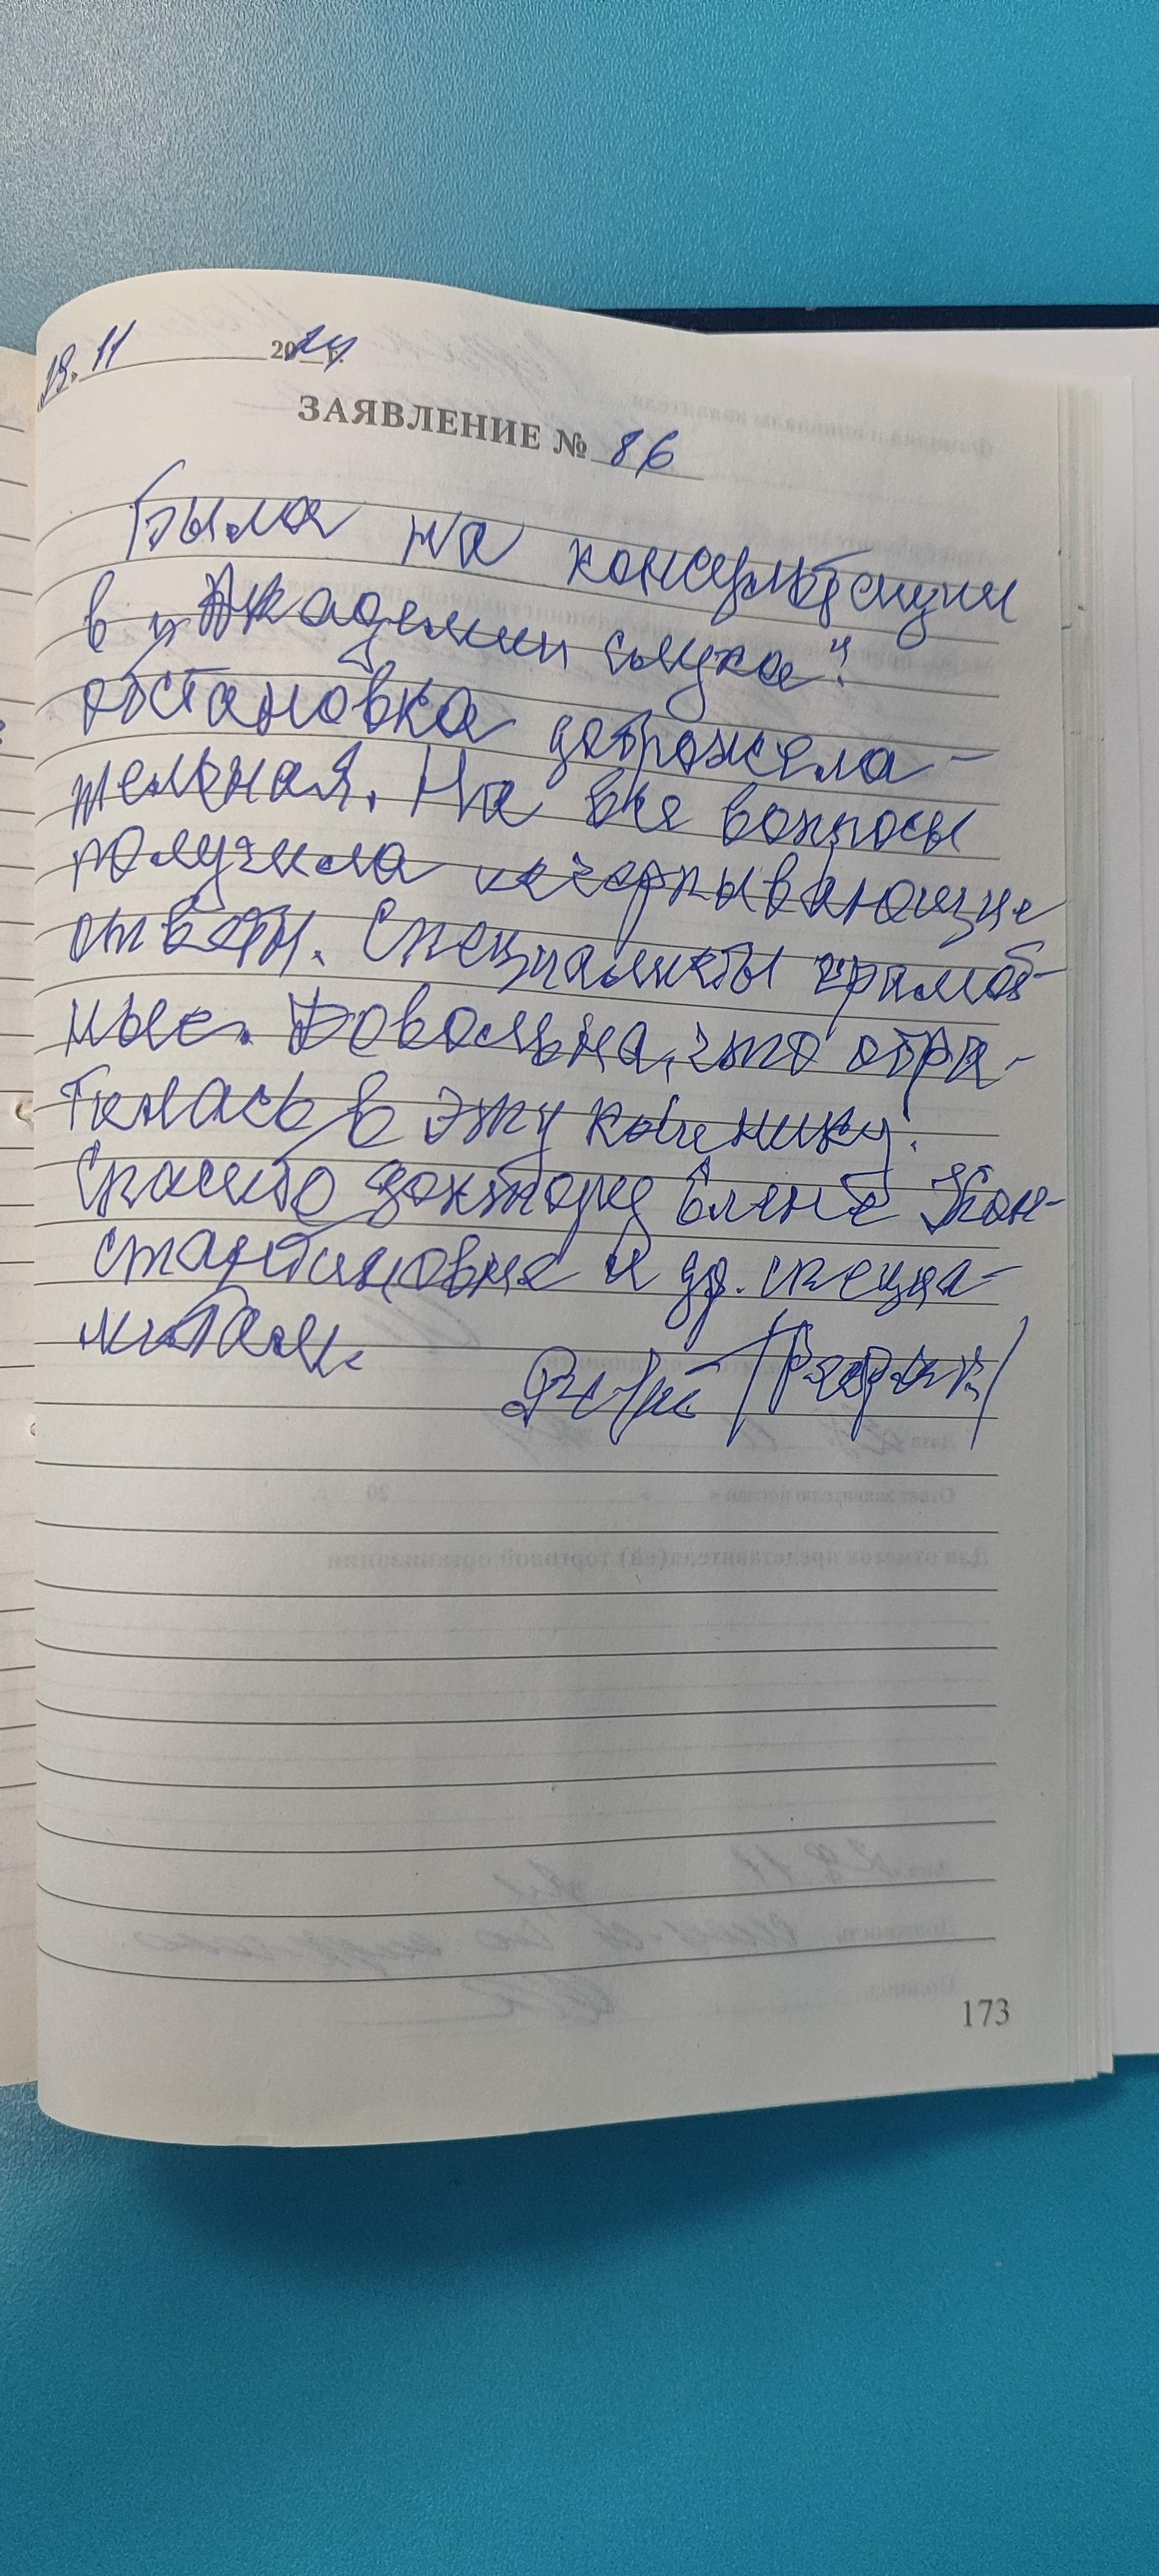 19.11 2024 г.
ЗАЯВЛЕНИЕ № 86
Была на консультации
в "Академии слуха".
обстановка доброжела-
тельная. На все вопросы
получила исчерпывающие
ответы. Специалисты грамот-
ные. Довольна, что обра-
тилась в эту клинику.
Спасибо доктору Елене Кон-
стантиновне и др. специа-
листам.
173